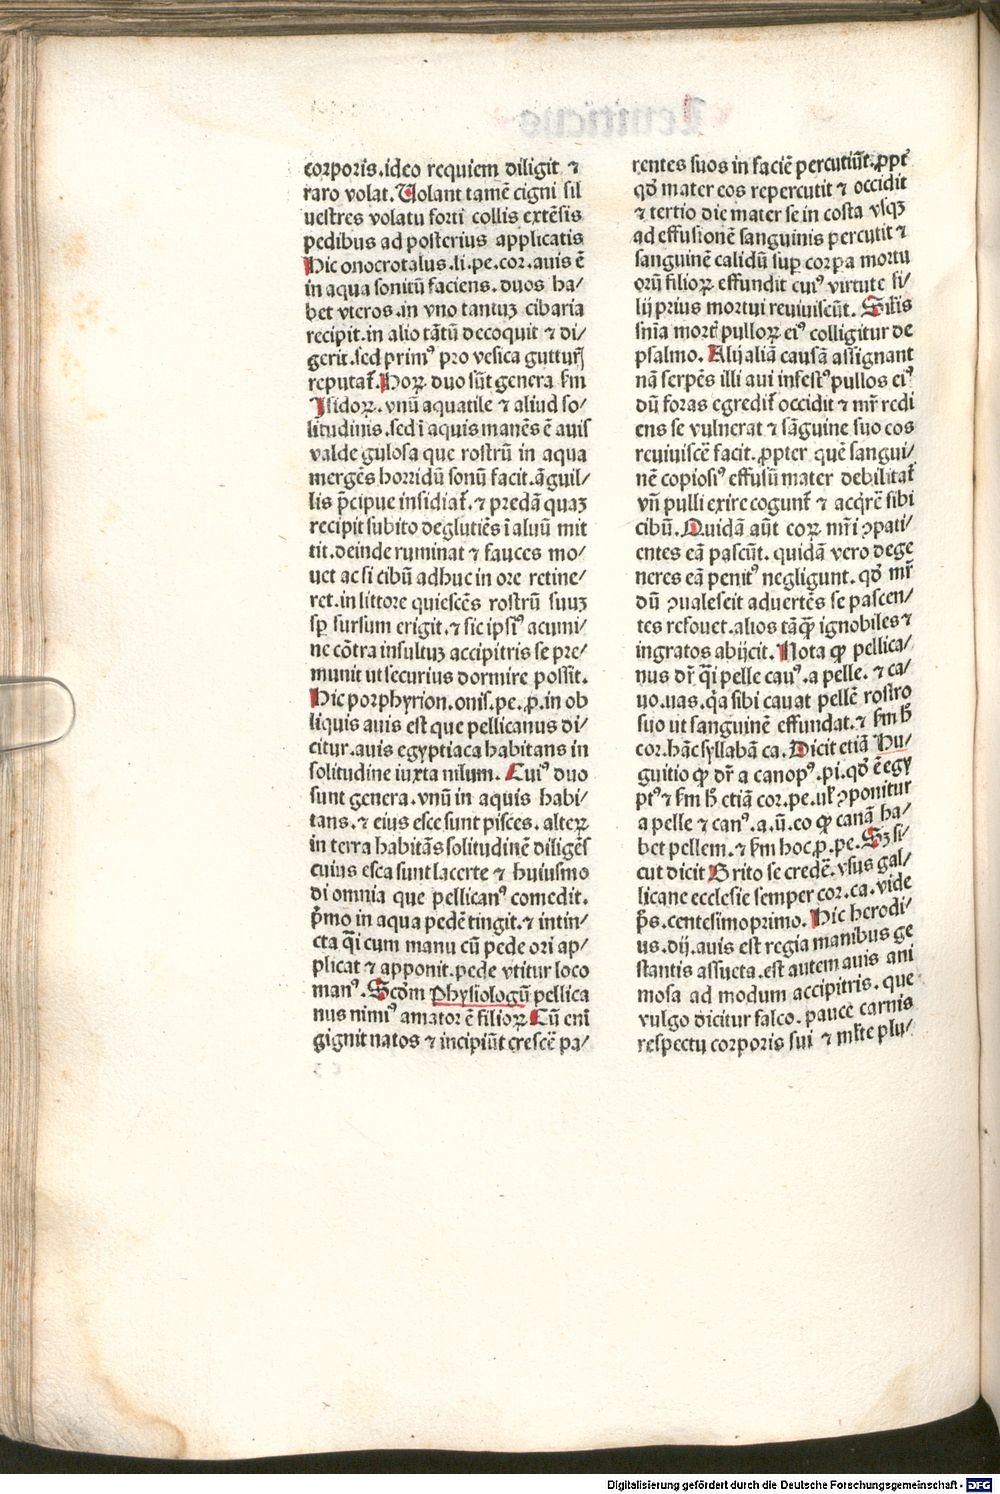 corporis.ideo requiem diligit ⁊
raro volat. Uolant tamē cigni sil
uestres volatu forti collis extēsis
pedibus ad posterius applicatis
Hic onocrotalus.li.pe.cor.auis ē
in aqua sonitū faciens.duos ha/
bet vteros.in vno tantuꝫ cibaria
recipit.in alio tātū decoquit ⁊ di/
gerit.sed primꝰ pro vesica gutturj
reputat̄. Horꝝ duo sūt genera ẜm
Isidorꝝ.vnū aquatile ⁊ aliud so/
litudinis.sed ī aquis manēs ē auis
valde gulosa que rostrū in aqua
mergēs horridū sonū facit.āguil/
lis p̄cipue insidiat̄.⁊ predā quaꝫ
recipit subito deglutiēs ī aluū mit
tit.deinde ruminat ⁊ fauces mo/
uet ac si cibū adhuc in ore retine/
ret.in littore quiescēs rostrū suuꝫ
sꝑ sursum erigit.⁊ sic ipsiꝰ acumi/
ne cōtra insultuꝫ accipitris se pre/
munit ut securius dormire possit.
Hic porphyrion.onis.pe.ꝓ.in ob
liquis auis est que pellicanus di/
citur.auis egyptiaca habitans in
solitudine iuxta nilum. Cuiꝰ duo
sunt genera.vnū in aquis habi/
tans.⁊ eius esce sunt pisces.alterꝝ
in terra habitās solitudinē diligēs
cuius esca sunt lacerte ⁊ huiusmo
di omnia que pellicanꝰ comedit.
p̄mo in aqua pedē tingit.⁊ intin/
cta q̄si cum manu cū pede ori ap/
plicat ⁊ apponit.pede vtitur loco
manꝰ. Scd̄m Physiologū pellica
nus nimiꝰ amator ē filiorꝝ Cū enī
gignit natos ⁊ incipiūt crescē pa/
rentes suos in faciē percutiūt.ꝓpt̄
qd̄ mater eos repercutit ⁊ occidit
⁊ tertio die mater se in costa vsqꝫ
ad effusionē sanguinis percutit ⁊
sanguinē calidū suꝑ corpa mortu
orū filiorꝝ effundit cuiꝰ virtute fi/
lij prius mortui reuiuiscūt. Silis
sn̄ia mort̄ pullorꝝ eiꝰ colligitur de
psalmo. Alij aliā causā assignant
nā serpēs illi aui infestꝰ pullos eiꝰ
dū foras egredit̄ occidit ⁊ mr̄ redi
ens se vulnerat ⁊ sāguine suo eos
reuiuiscē facit.ꝓpter quē sangui/
nē copiosiꝰ effusū mater debilitat̄
vn̄ pulli exire cogunt̄ ⁊ acq̄rē sibi
cibū. Quidā aūt eorꝝ mr̄i ꝯpati/
entes eā pascūt. quidā vero dege
neres eā penitꝰ negligunt. qd̄ mr̄
dū ꝯualescit aduertēs se pascen/
tes refouet.alios tāꝙ̄ ignobiles ⁊
ingratos abijcit. Nota ꝙ pellica/
nus dr̄ q̄si pelle cauꝰ.a pelle. ⁊ ca/
uo.uas.q̄a sibi cauat pellē rostro
suo ut sanguinē effundat.⁊ ẜm h̄
cor.hāc syllabā ca. Dicit etiā Hu/
guitio ꝙ dr̄ a canopꝰ.pi.qd̄ ē egy
ptꝰ ⁊ ẜm h̄ etiā cor.pe.ul̄ ꝯponitur
a pelle ⁊ canꝰ.a.ū.co ꝙ canā ha/
bet pellem.⁊ ẜm hoc ꝓ.pe. Sꝫ si/
cut dicit Brito se credē.vsus gal/
licane ecclesie semper cor.ca.vide
p̄s.centesimoprimo. Hic herodi/
us.dij.auis est regia manibus ge
stantis assueta.est autem auis ani
mosa ad modum accipitris. que
vulgo dicitur falco. pauce carnis
respectu corporis sui ⁊ ml̄te plu/
Digitalisierung gefördert durch die Deutsche Forschungsgemeinschaft - DFG